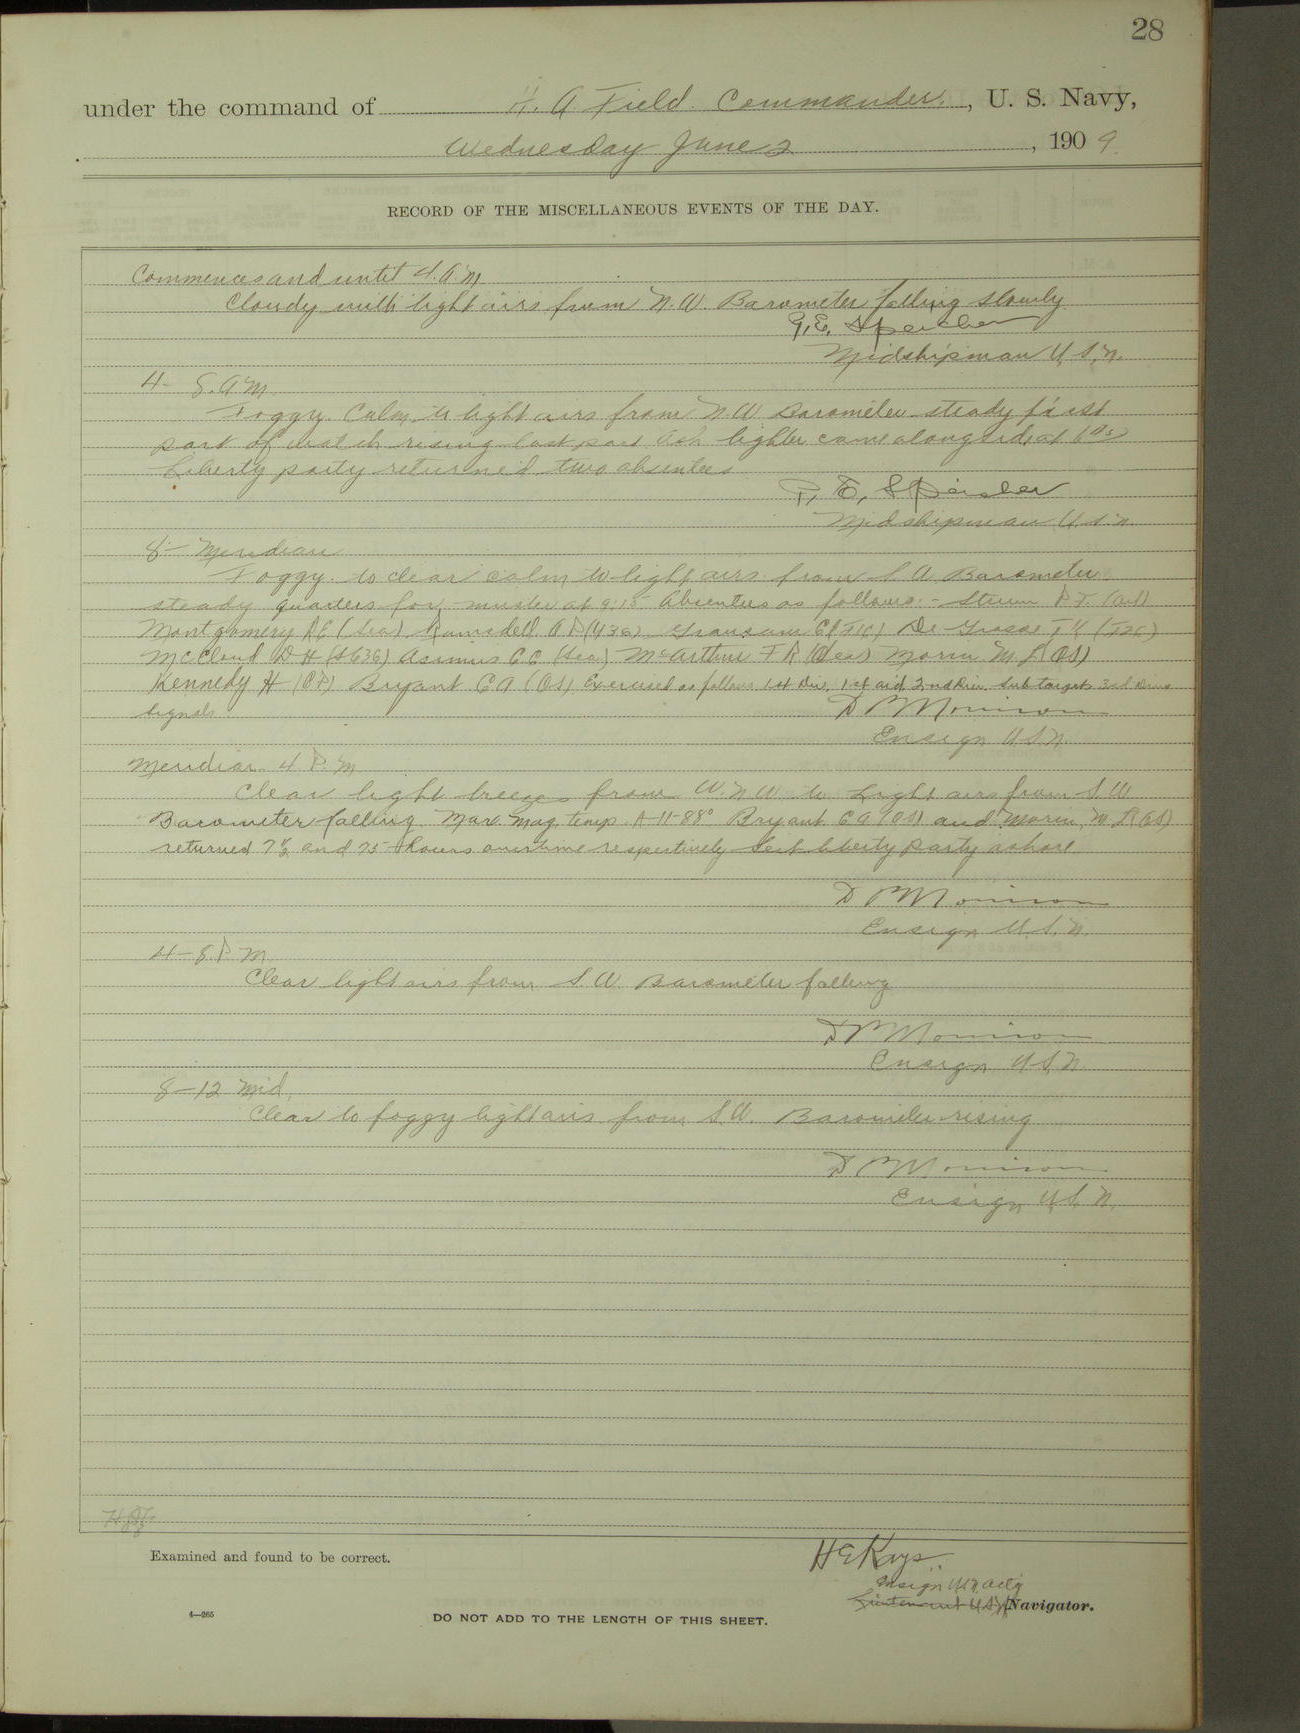 28
under the command of H. A. Field. Commander. , U. S. Navy,
Wednesday June 2 , 190 9.
RECORD OF THE MISCELLANEOUS EVENTS OF THE DAY.
Commences and until 4. A.M
Cloudy with light airs from N. W. Barometer falling slowly
Midshipman U. S. N.
4- 8. A M.
Foggy. Calm to light airs from N. W Barometer steady first
part of watch rising last part Ash lighter came alongside at
Liberty party returned two absentees
Midshipman U S N.
8- Meridian
Foggy. to clear calm to light airs from S W Barometer
steady quarters for muster at 9:15 Absentees as follows:-
Montgomery (Sea) Ramsdell. De Grasse
McCloud D H (Sea) McArthur F R Morin M L (OS)
Kennedy H (CP) Bryant C A (OS) Exercised as follows 1st Div. 1st aid, 2nd Div. Sub target 3rd Divs
signals
D P Morrison
Ensign U.S.N.
Meridian- 4 P. M
Clear light breezes from W. N W to Light airs from S W
Barometer falling. Max. Mag. temp. A-11-88° Bryant C A (OS) and Morin, M L (OS)
returned and 25 hours overtime respectively Sent liberty party ashore.
D P Morrison
Ensign U. S. N.
4-8. P M.
Clear light airs from S. W. Barometer falling
D P Morrison
Ensign U. S. N.
8-12 Mid.
Clear to foggy light airs from S. W. Barometer rising
D P Morrison
Ensign U. S. N.
Examined and found to be correct.
H E Kays
Ensign U.S.N. actg
Lieutenant U.S.N. Navigator.
4—265
DO NOT ADD TO THE LENGTH OF THIS SHEET.